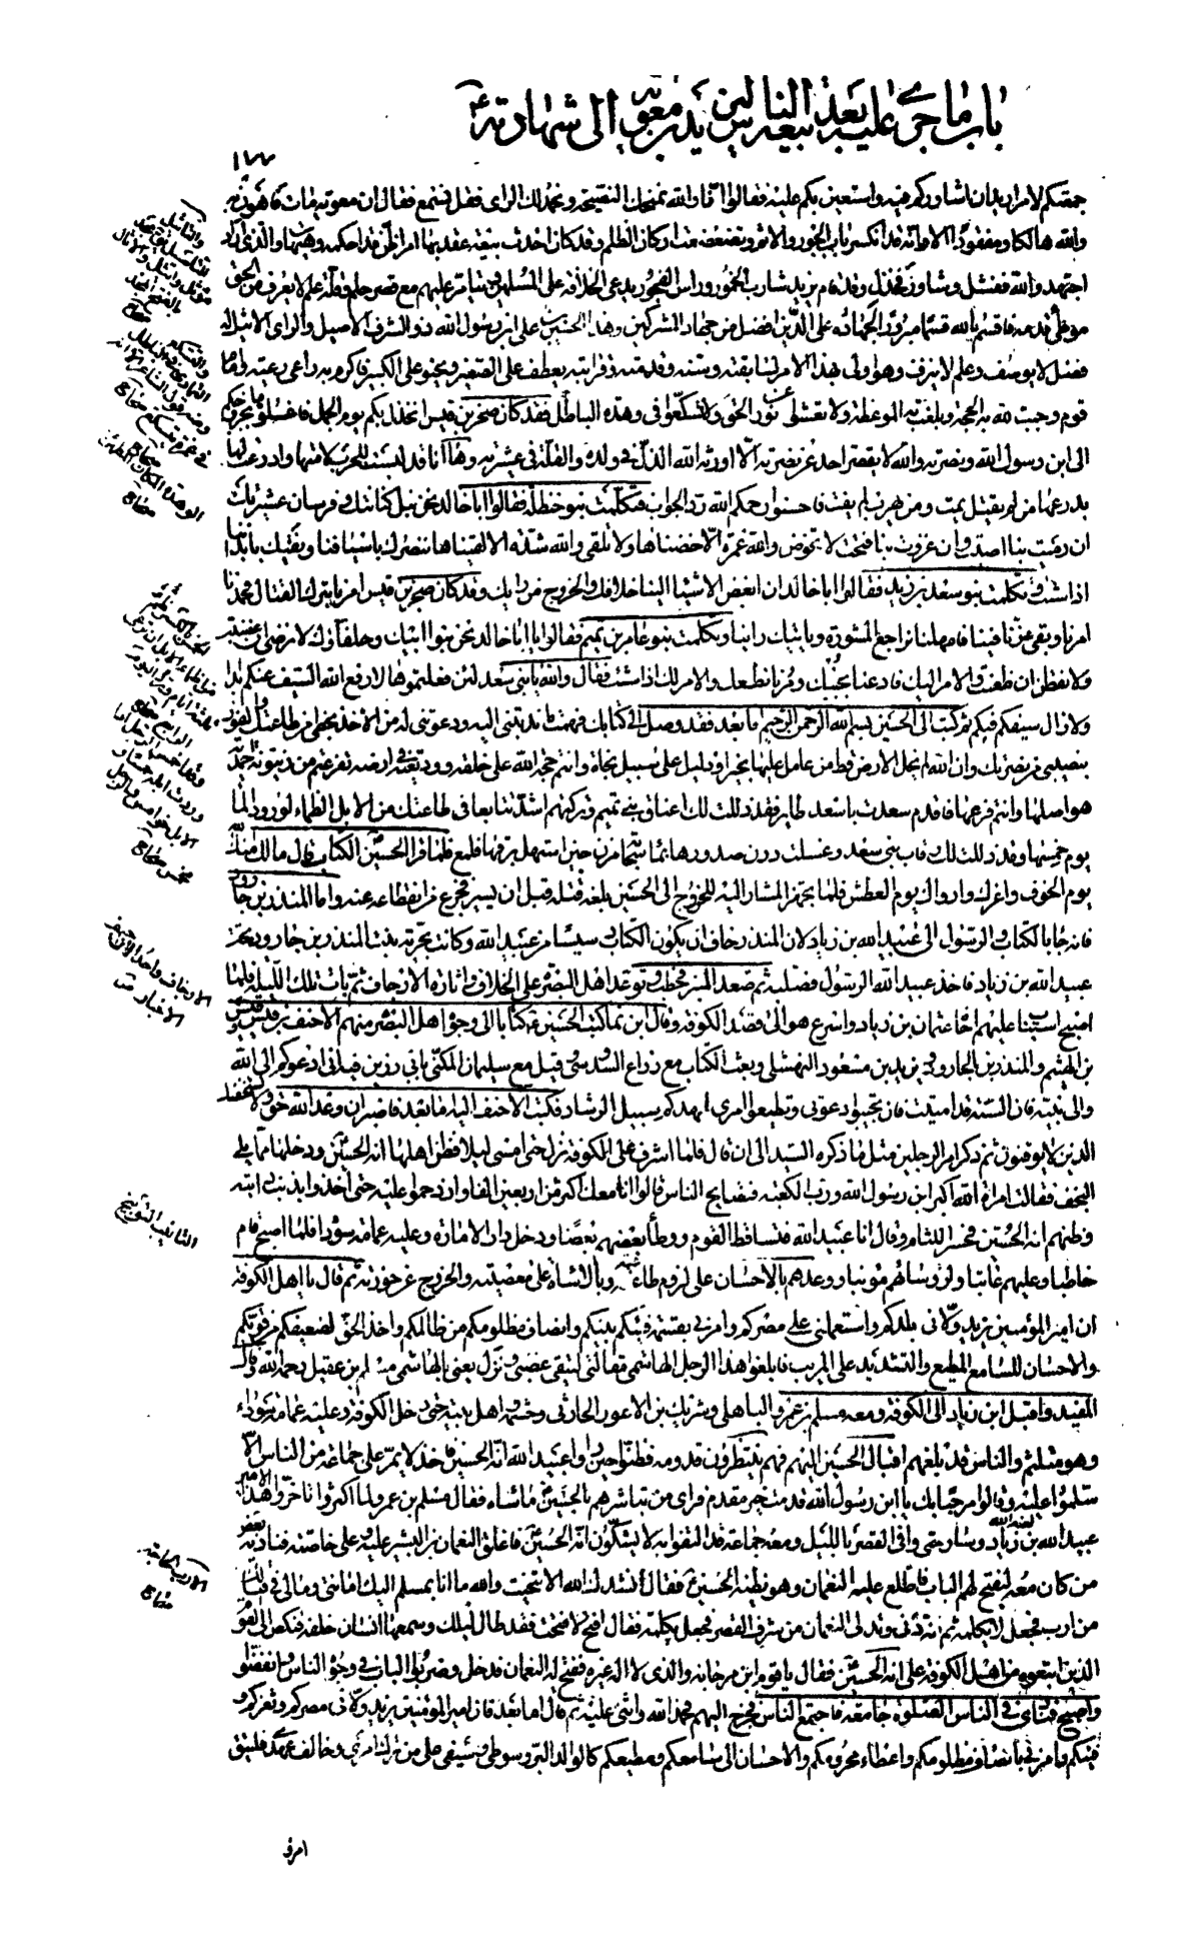 باب ما جرى عليه بعد بيعة الناس ليزيد بن معوية الى شهادته
١٧٧
جمعتكم لامر اريد ان اشاوركم فيه واستعين بكم عليه فقالوا انا والله نمنحك النصيحة ونحمد لك الراى فقل نسمع فقال ان معوية مات فاهون به
والله هالكا ومفقودا الا وانه قد انكسر باب الجور والاثم وتضعضعت اركان الظلم وقد كان احدث بيعة عقد بها امرا ظن قد احكمه وهيهات والذى اراد
اجتهد والله ففشل وشاور فخذل وقد قام يزيد شارب الخمور وراس الفجور يدعى الخلافة على المسلمين ويتامر عليهم مع قصر حلم وقلة علم لا يعرف من الحق
موطئ قدمه فاقسم بالله قسما مبرورا لجهاده على الدين افضل من جهاد المشركين وهذا الحسين بن على ابن رسول الله ذو الشرف الاصيل والراى الاثيل له
فضل لا يوصف وعلم لا ينزف وهو اولى بهذا الامر لسابقته وسنه وقدمته وقرابته يعطف على الصغير ويحنو على الكبير فاكرم به راعى رعية وامام
قوم وجبت لله به الحجة وبلغت به الموعظة ولا تعشوا عن نور الحق ولا تسكعوا فى وهدة الباطل فقد كان صخر بن قيس انخذل بكم يوم الجمل فاغسلوها بخروجكم
الى ابن رسول الله ونصرته والله لا يقصر احد عن نصرته الا اورثه الله الذل فى ولده والقلة فى عشيرته وها انا قد لبست للحرب لامتها وادرعت لها
بدرعها من لم يقتل يمت ومن يهرب لم يفت فاحسنوا رحمكم الله رد الجواب فتكلمت بنو حنظلة فقالوا ابا خالد نحن نبل كنانتك وفرسان عشيرتك
ان رميت بنا اصبت وان غزوت بنا فتحت لا تخوض والله غمرة الا خضناها ولا تلقى والله شدة الا لقيناها ننصرك باسيافنا ونقيك بابداننا
اذا شئت وتكلمت بنو سعد بن زيد فقالوا ابا خالد ان ابغض الاشياء الينا خلافك والخروج من رايك وقد كان صخر بن قيس امرنا بترك القتال فحمدنا
امرنا وبقى عزنا فينا فامهلنا نراجع المشورة وياتيك راينا وتكلمت بنو عامر بن تميم فقالوا يا ابا خالد نحن بنو ابيك وحلفاؤك لا نرضى ان غضبت
ولا نقطن ان ظعنت والامر اليك فادعنا نجبك ومرنا نطعك والامر لك اذا شئت فقال والله يا بنى سعد لئن فعلتموها لا رفع الله السيف عنكم ابدا
ولا زال سيفكم فيكم ثم كتب الى الحسين بسم الله الرحمن الرحيم اما بعد فقد وصل الى كتابك وفهمت ما ندبتنى اليه ودعوتنى له من الاخذ بحظى من طاعتك والفوز
بنصيبى من نصرتك وان الله لم يخل الارض قط من عامل عليها بخير او دليل على سبيل نجاة وانتم حجة الله على خلقه ووديعته فى ارضه تفرعتم من زيتونة احمدية
هو اصلها وانتم فرعها فاقدم سعدت باسعد طاير فقد ذللت لك اعناق بنى تميم وتركتهم اشد تتابعا فى طاعتك من الابل الظماء لورود الماء
يوم خمسها وقد ذللت لك رقاب بنى سعد وغسلت درن صدورها بماء سحابة مزن حين استهل برقها فلمع فلما قرا الحسين الكتاب قال مالك آمنك الله
يوم الخوف واعزك وارواك يوم العطش فلما تجهز المشار اليه للخروج الى الحسين بلغه قتله قبل ان يسير فجزع من انقطاعه عنه واما المنذر بن جارود
فانه جاء بالكتاب والرسول الى عبيد الله بن زياد لان المنذر خاف ان يكون الكتاب دسيسا من عبيد الله وكانت بحرية بنت المنذر بن جارود تحت
عبيد الله بن زياد فاخذ عبيد الله الرسول فصلبه ثم صعد المنبر فخطب وتوعد اهل البصرة على الخلاف واثارة الارجاف ثم بات تلك الليلة فلما
اصبح استناب عليهم اخاه عثمان بن زياد واسرع هو الى قصد الكوفة وقال ابن نما كتب الحسين كتابا الى وجوه اهل البصرة منهم الاحنف بن قيس وقيس
بن الهيثم والمنذر بن الجارود ويزيد بن مسعود النهشلى وبعث الكتاب مع زراع السدوسى وقيل مع سليمان المكنى بابى رزين فيه انى ادعوكم الى الله
والى نبيه فان السنة قد اميتت فان تجيبوا دعوتى وتطيعوا امرى اهدكم سبيل الرشاد فكتب الاحنف اليه اما بعد فاصبر ان وعد الله حق ولا يستخفنك
الذين لا يوقنون ثم ذكر امر الرجلين مثل ما ذكره السيد الى ان قال فلما اشرف على الكوفة نزل حتى امسى ليلا فظن اهلها انه الحسين ودخلها مما يلى
النجف فقالت امراة الله اكبر ابن رسول الله ورب الكعبة فتصايح الناس قالوا انا معك اكثر من اربعين الفا وازدحموا عليه حتى اخذوا بذنب دابته
وظنهم انه الحسين فحسر اللثام وقال انا عبيد الله فتساقط القوم ووطأ بعضهم بعضا ودخل دار الامارة وعليه عمامة سوداء فلما اصبح قام
خاطبا وعليهم عاتبا ولرؤسائهم مؤنبا ووعدهم بالاحسان على لزوم طاعته وبالاساءة على معصيته والخروج عن حوزته ثم قال يا اهل الكوفة
ان امير المؤمنين يزيد ولانى بلدكم واستعملنى على مصركم وامرنى بقسمة فيئكم بينكم وانصاف مظلومكم من ظالمكم واخذ الحق لضعيفكم من قويكم
والاحسان للسامع المطيع والتشديد على المريب فابلغوا هذا الرجل الهاشمى مقالتى ليتقى غضبى ونزل يعنى بالهاشمى مسلم بن عقيل رحمه الله وقال
المفيد واقبل ابن زياد الى الكوفة ومعه مسلم بن عمرو الباهلى وشريك بن الاعور الحارثى وحشمه واهل بيته حتى دخل الكوفة وعليه عمامة سوداء
وهو متلثم والناس قد بلغهم اقبال الحسين اليهم فهم ينتظرون قدومه فظنوا حين راوا عبيد الله انه الحسين فاخذ لا يمر على جماعة من الناس الا
سلموا عليه وقالوا مرحبا بك يا ابن رسول الله قدمت خير مقدم فراى من تباشرهم بالحسين ما ساءه فقال مسلم بن عمرو لما اكثروا تاخروا هذا الامير
عبيد الله بن زياد وسار حتى وافى القصر بالليل ومعه جماعة قد التفوا به لا يشكون انه الحسين فاغلق النعمان بن البشير عليه وعلى خاصته فناداه بعض
من كان معه ليفتح لهم الباب فاطلع عليه النعمان وهو يظنه الحسين فقال انشدك الله الا تنحيت والله ما انا بمسلم اليك امانتى وما لى فى قتالك
من ارب فجعل لا يكلمه ثم انه دنى وتدلى النعمان من شرف القصر فجعل يكلمه فقال افتح لا فتحت فقد طال ليلك وسمعها انسان خلفه فنكص الى القوم
الذين اتبعوه من اهل الكوفة على انه الحسين فقال يا قوم ابن مرجانة والذى لا اله غيره ففتح له النعمان فدخل وضربوا الباب فى وجوه الناس وانفضوا
واصبح فنادى فى الناس الصلوة جامعة فاجتمع الناس فخرج اليهم فحمد الله واثنى عليه ثم قال اما بعد فان امير المؤمنين يزيد ولانى مصركم وثغركم و
فيئكم وامرنى بانصاف مظلومكم واعطاء محرومكم والاحسان الى سامعكم ومطيعكم كالوالد البر وسوطى وسيفى على من ترك امرى وخالف عهدى فليتق
امرؤ